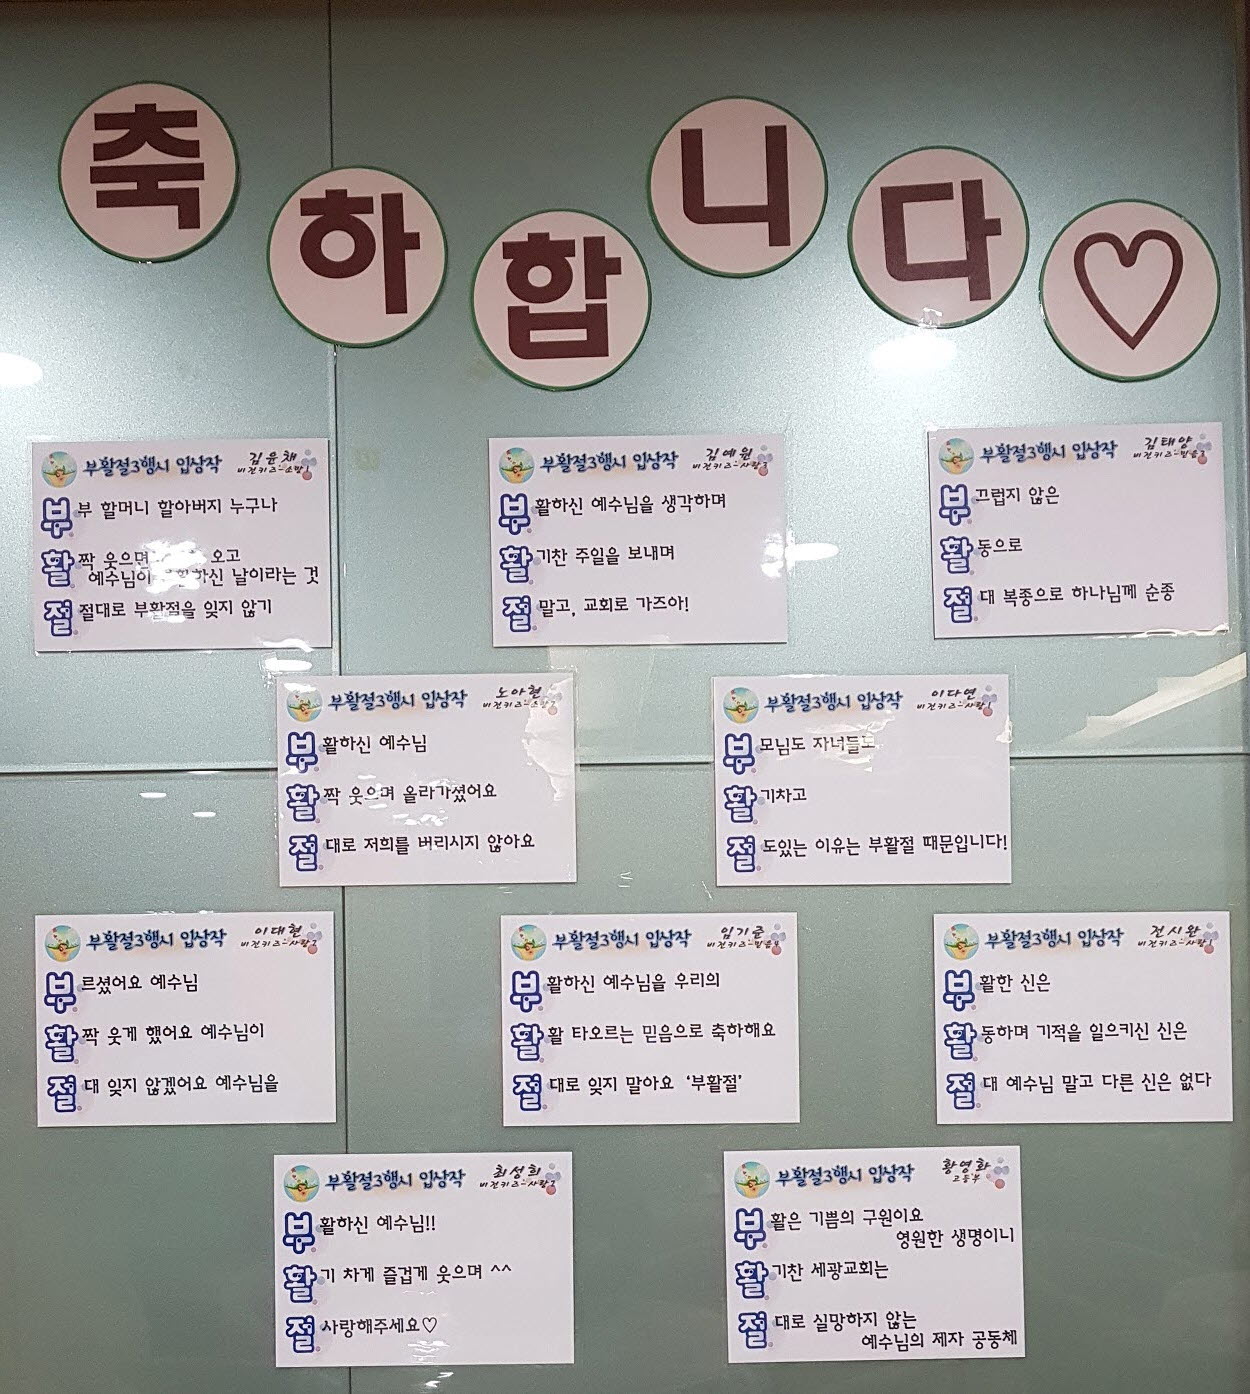 축하합니다♡
부활절3행시 입상작 김윤채
비전키즈-소망1
부부 할머니 할아버지 누구나
활짝 웃으면 오고
예수님이 부활하신 날이라는 것
절절대로 부활절을 잊지 않기
부활절3행시 입상작 김예원
비전키즈-사랑3
부활하신 예수님을 생각하며
활기찬 주일을 보내며
절말고, 교회로 가즈아!
부활절3행시 입상작 김태양
비전키즈-믿음2
부끄럽지 않은
활동으로
절대 복종으로 하나님께 순종
부활절3행시 입상작 노아현
비전키즈-소망2
부활하신 예수님
활짝 웃으며 올라가셨어요
절대로 저희를 버리시지 않아요
부활절3행시 입상작 이다연
비전키즈-사랑1
부모님도 자녀들도
활기차고
절도있는 이유는 부활절 때문입니다!
부활절3행시 입상작 이대현
비전키즈-사랑2
부르셨어요 예수님
활짝 웃게 했어요 예수님이
절대 잊지 않겠어요 예수님을
부활절3행시 입상작 임기준
비전키즈-믿음4
부활하신 예수님을 우리의
활활 타오르는 믿음으로 축하해요
절대로 잊지 말아요 ‘부활절’
부활절3행시 입상작 전시완
비전키즈-사랑1
부활한 신은
활동하며 기적을 일으키신 신은
절대 예수님 말고 다른 신은 없다
부활절3행시 입상작 최성희
비전키즈-사랑2
부활하신 예수님!!
활기 차게 즐겁게 웃으며 ^^
절사랑해주세요♡
부활절3행시 입상작 황영화
고등부
부활은 기쁨의 구원이요
영원한 생명이니
활기찬 세광교회는
절대로 실망하지 않는
예수님의 제자 공동체